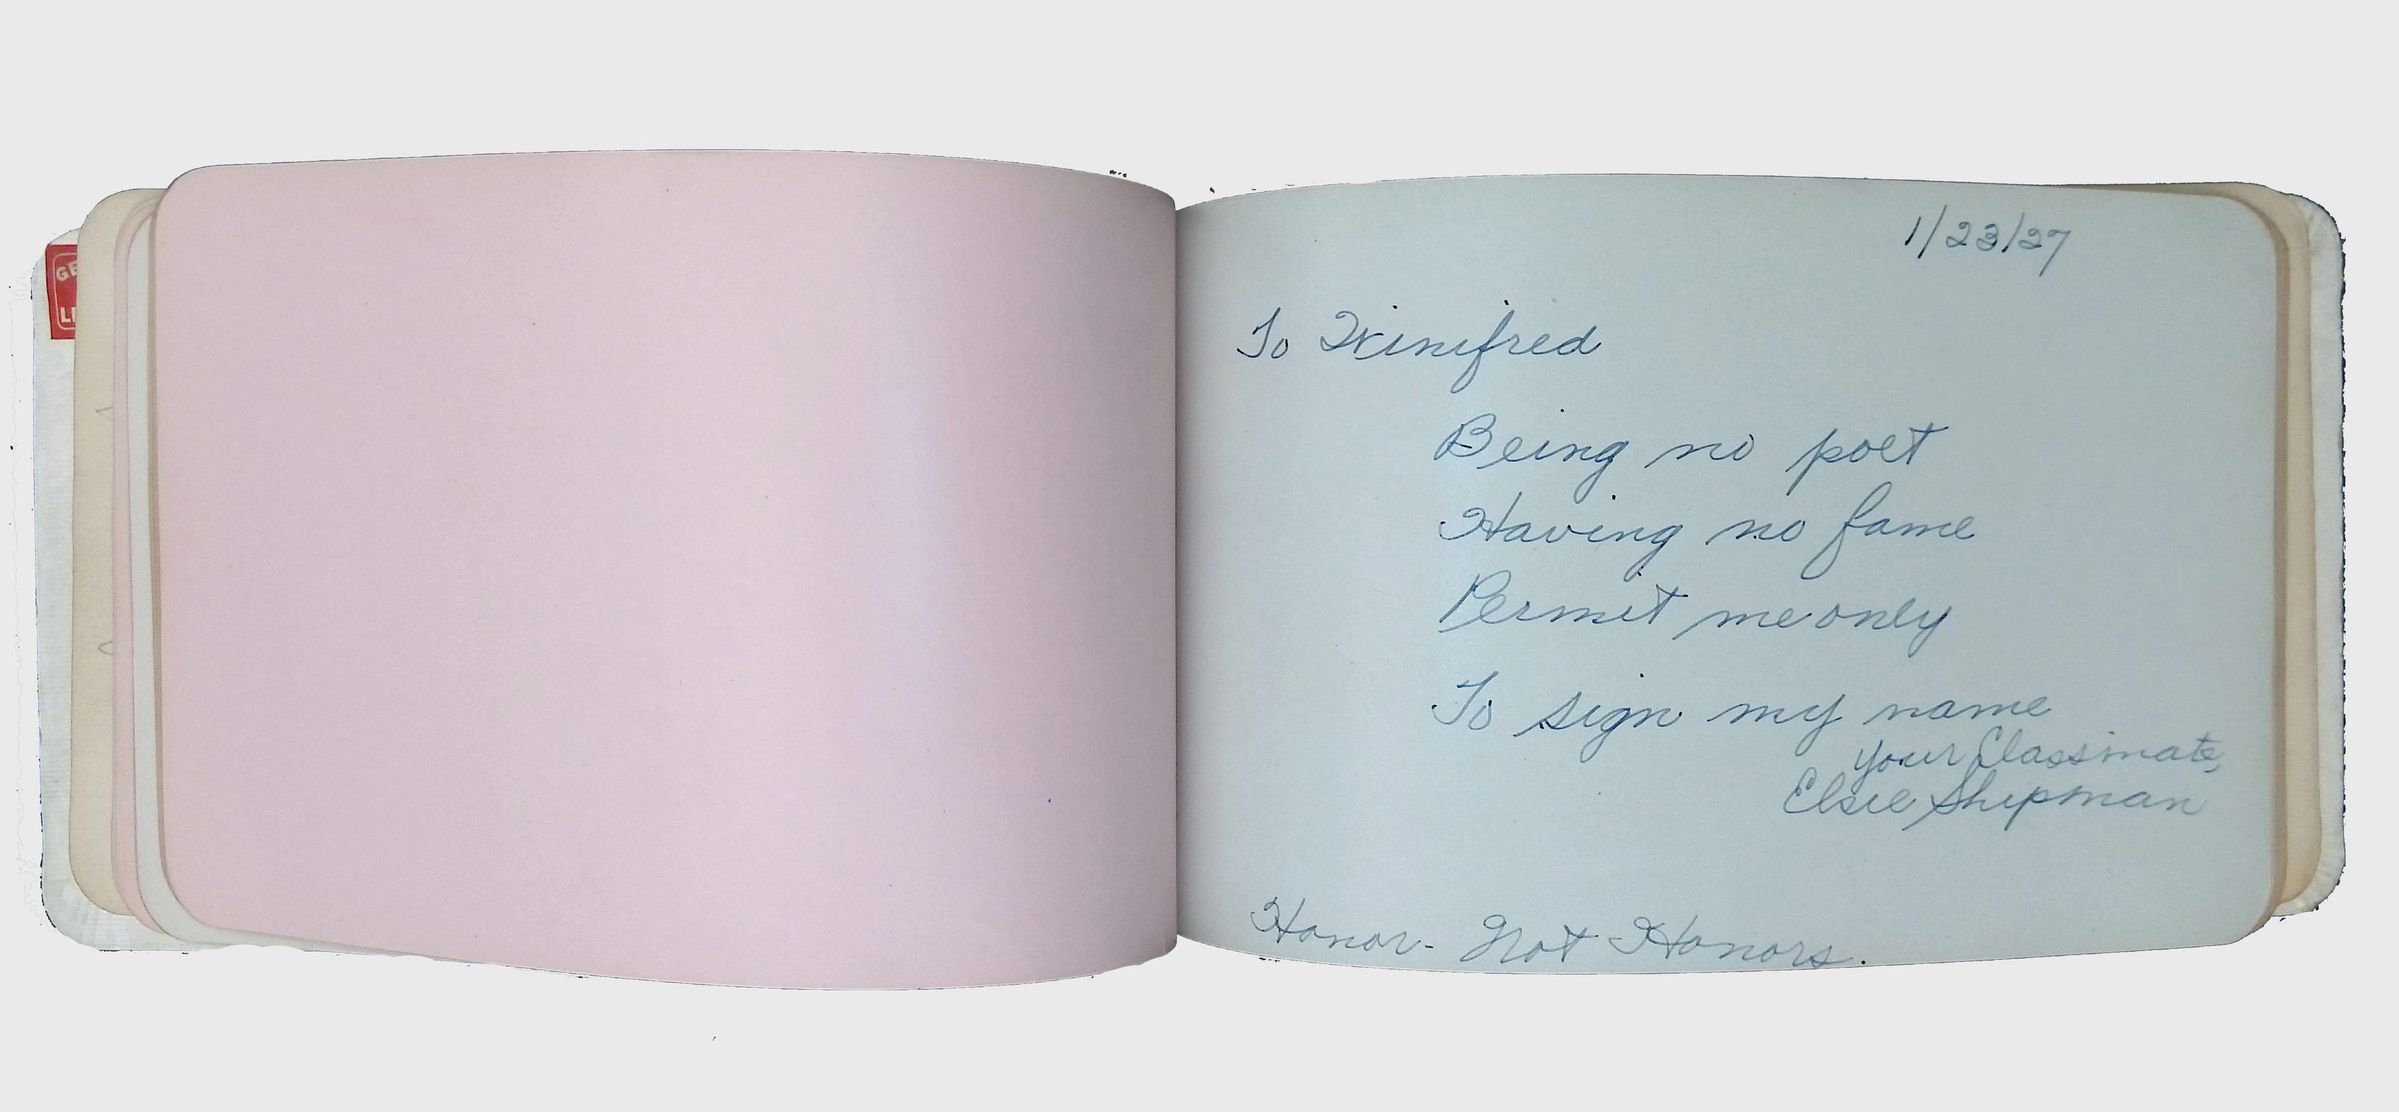 GE
LI
1/23/27
To Winifred
Being no poet
Having no fame
Permit me only
To sign my name
your Classmate,
Elsie Shipman
Honor- Not Honors.